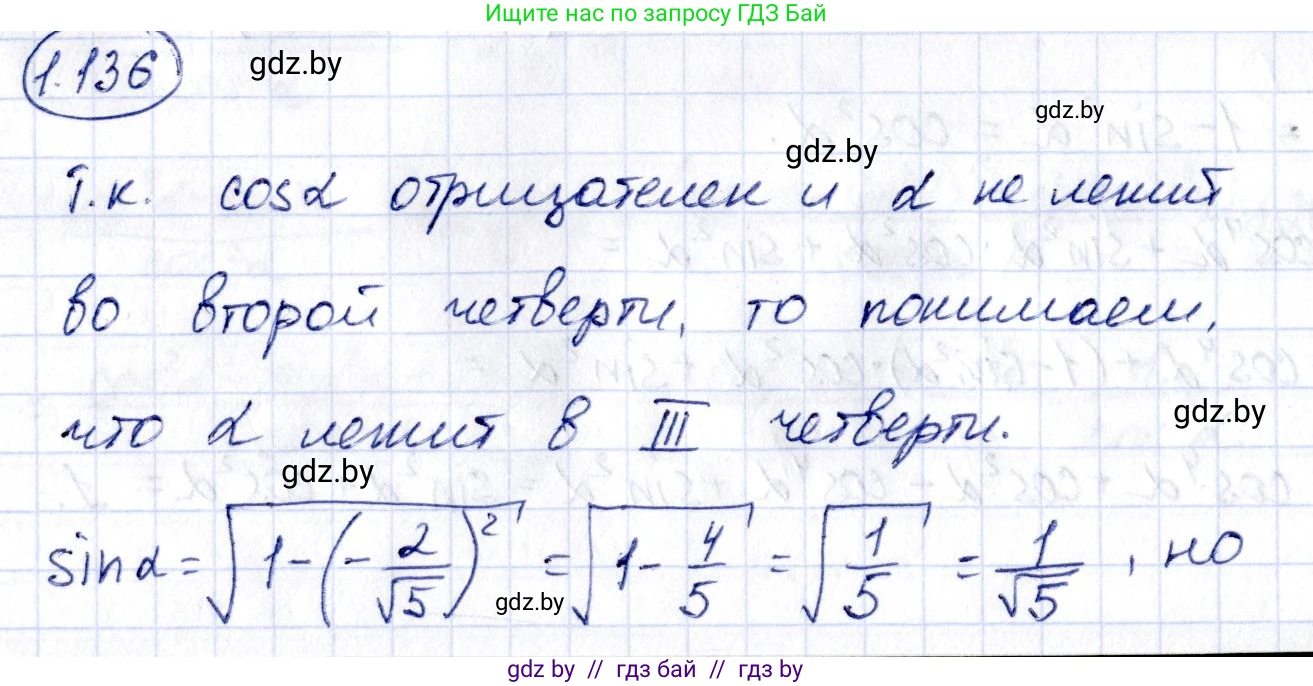 Ищите нас по запросу ГДЗ Бай
1.136
gdz.by
gdz.by
gdz.by
Т.к. cosα отрицателен и α не лежит
во второй четверти, то понимаем,
что α лежит в III четверти.
gdz.by
gdz.by
sinα = √(1-(-2/√5)²) = √(1-4/5) = √(1/5) = 1/√5, но
gdz.by
gdz.by // гдз бай // гдз by